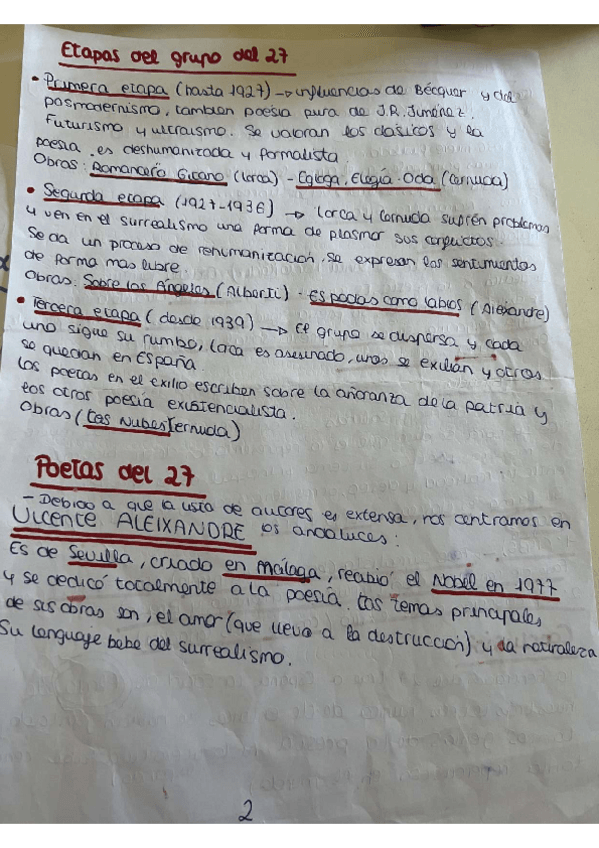 Etapas del grupo del 27
• Primera etapa (hasta 1927) → influencias de Bécquer y del
posmodernismo, tambien poesia pura de J.R. Jiménez.
Futurismo y ultraismo. Se valoran los clasicos y la
poesia es deshumanizada y formalista.
Obras: Romancero Gitano (Lorca) - Egloga, Elegía, Oda (Cernuda)
• Segunda etapa (1927-1936) → Lorca y Cernuda sufren problemas
y ven en el surrealismo una forma de plasmar sus conflictos.
Se da un proceso de rehumanización, se expresan los sentimientos
de forma mas libre.
Obras: Sobre los Ángeles (Alberti) - Espadas como labios (Aleixandre)
• Tercera etapa (desde 1939) → El grupo se dispersa y cada
uno sigue su rumbo, Lorca es asesinado, unos se exilian y otros
se quedan en España.
Los poetas en el exilio escriben sobre la añoranza de la patria y
los otros poesía existencialista.
Obras (Las Nubes Cernuda)
Poetas del 27
- Debido a que la lista de autores es extensa, nos centramos en
los andaluces:
Vicente ALEIXANDRE
Es de Sevilla, criado en Málaga, recibió el Nobel en 1977
y se dedicó totalmente a la poesía. Los temas principales
de sus obras son, el amor (que lleva a la destrucción) y la naturaleza
Su lenguaje bebe del surrealismo.
2